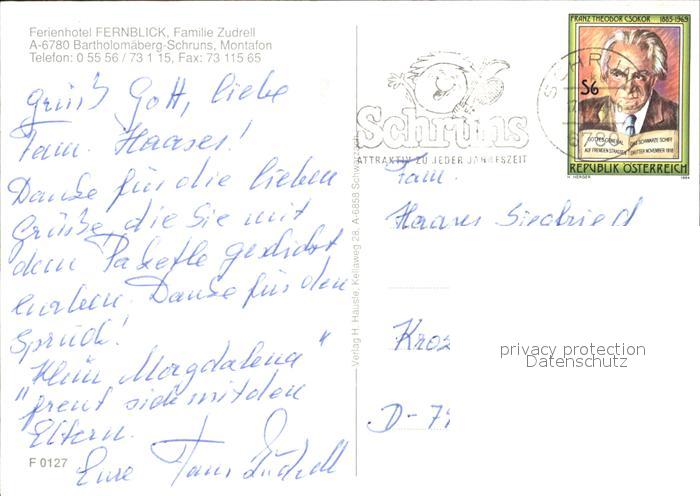 Ferienhotel FERNBLICK, Familie Zudrell
A-6780 Bartholomäberg-Schruns, Montafon
Telefon: 0 55 56 / 73 1 15, Fax: 73 115 65
Grüß Gott, liebe
Fam. Haases!
Danke für die lieben
Grüße, die Sie mit
dem Paketle geschickt
haben. Danke für den
Spruch!
"Klein Magdalena"
freut sich mit den
Eltern.
Eure Fam. Zudrell
F 0127
Verlag H. Häusle, Kellaweg 28, A-6858 Schwarzach
Schruns
ATTRAKTIV ZU JEDER JAHRESZEIT
SCHRUNS
6780
FRANZ THEODOR CSOKOR 1885-1969
S6
GOTTES GENERAL DAS SCHWARZE SCHIFF
AUF FREMDEN STRASSEN DRITTER NOVEMBER 1918
REPUBLIK ÖSTERREICH
H. HERGER 1994
Fam.
Haases Siegfried
Kroz
D-71
privacy protection
Datenschutz